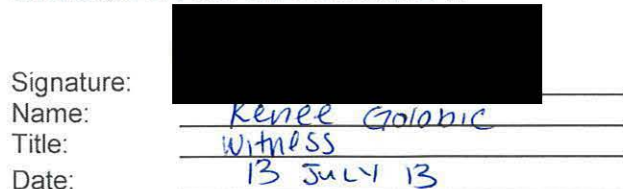 Signature:
Name: Renee Golobic
Title: Witness
Date: 13 JULY 13